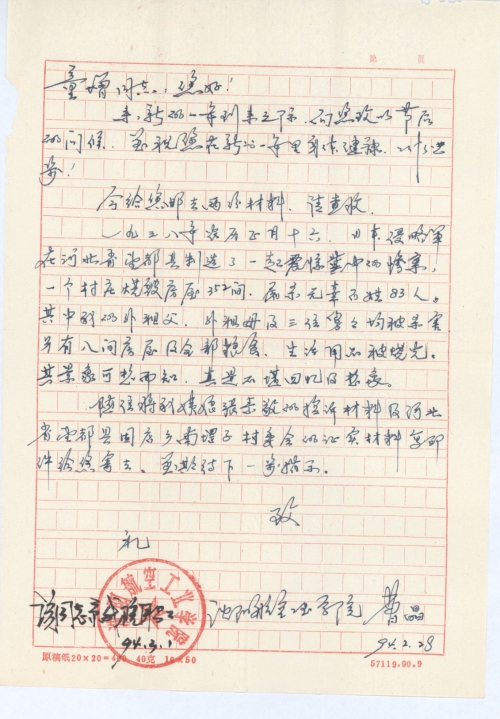 第 页
童增同志：您好！
来，新的一年到来之际，向您致以节后
的问候。并祝您在新的一年里身体健康，
今给您邮去两份材料，请查收。
一九三八年农历正月十六，日本侵略军
在河北省望都县制造了一起震惊冀中的惨案，
一个村庄烧毁房屋352间，屠杀无辜百姓83人。
其中我的外祖父、外祖母及三位舅均被杀害
另有八间房屋及全部粮食、生活用品被烧光。
其景象可想而知，真是不堪回忆及想象。
随信将我揭发的控诉材料及河北
省望都县固店乡南堤子村委会的证实材料复印
件给您寄去。并期待下一步指示。
致
礼
航空工业学院
该同志系我院职工
94.3.1
沈阳航空工业学院 曹晶
94.2.28
原稿纸20×20=400 40克 16×50
57119.90.9